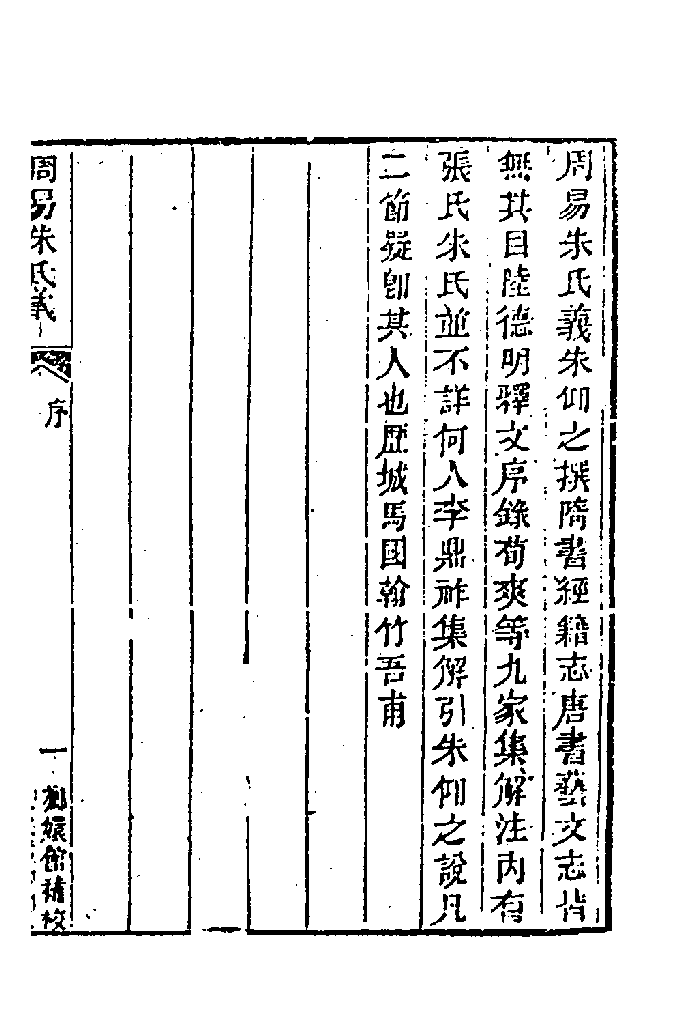 周易朱氏義朱仰之撰隋書經籍志唐書藝文志皆
無其目陸德明釋文序錄荀爽等九家集解注內有
張氏朱氏並不詳何人李鼎祚集解引朱仰之說凡
二節疑卽其人也歷城馬國翰竹吾甫
周易朱氏義
序
一
嬛館補校